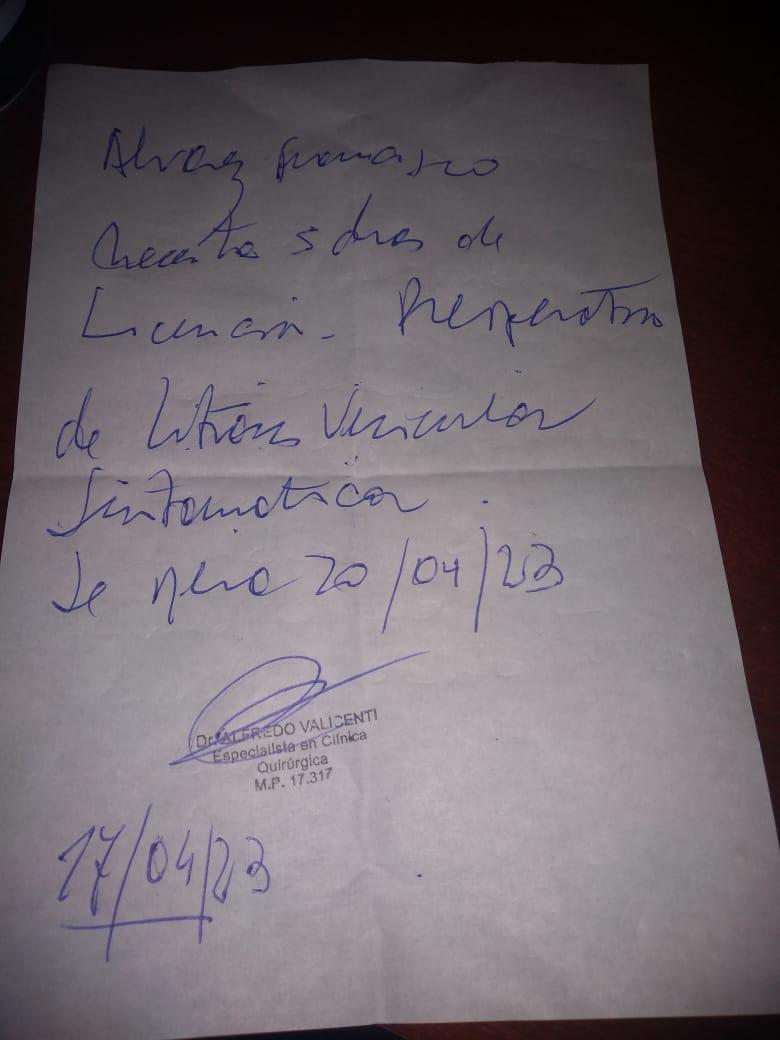 Alvarez Francisco
Necesita 5 dias de
Licencia - Preoperatorio
de Litiasis Vesicular
Sintomatica .
Se opera 20/04/23
Dr. ALFREDO VALICENTI
Especialista en Clínica
Quirúrgica
M.P. 17.317
17/04/23